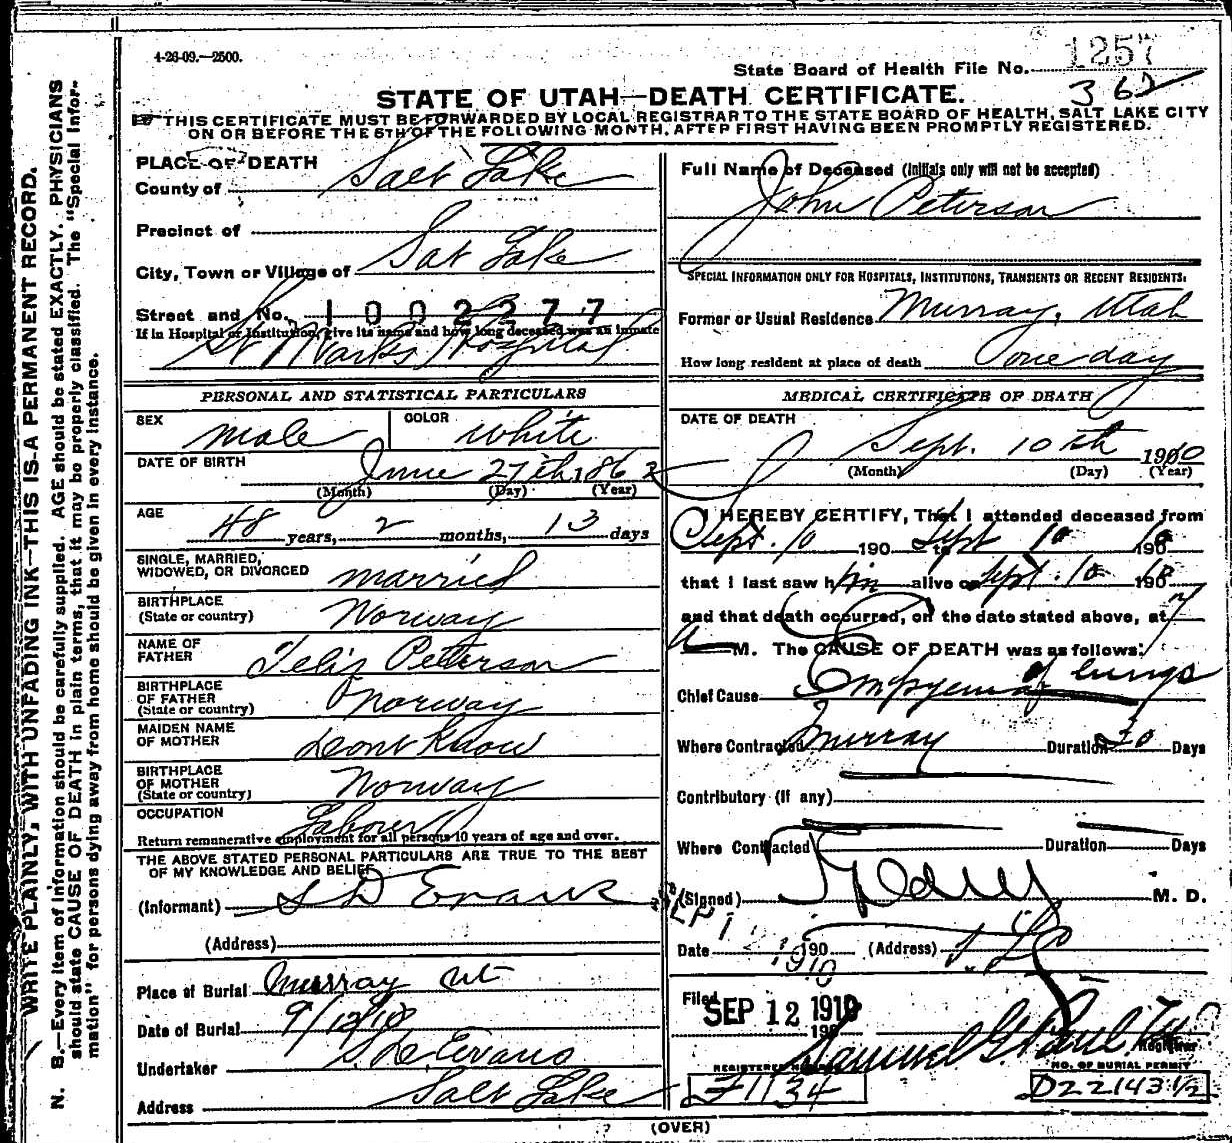 4-26-09.—2500.
1257
State Board of Health File No.
362
STATE OF UTAH—DEATH CERTIFICATE.
THIS CERTIFICATE MUST BE FORWARDED BY LOCAL REGISTRAR TO THE STATE BOARD OF HEALTH, SALT LAKE CITY
ON OR BEFORE THE 5TH OF THE FOLLOWING MONTH, AFTER FIRST HAVING BEEN PROMPTLY REGISTERED.
WRITE PLAINLY, WITH UNFADING INK—THIS IS A PERMANENT RECORD.
N. B.—Every item of information should be carefully supplied. AGE should be stated EXACTLY. PHYSICIANS
should state CAUSE OF DEATH in plain terms, that it may be properly classified. The "Special Infor-
mation" for persons dying away from home should be given in every instance.
PLACE OF DEATH
County of Salt Lake
Precinct of
City, Town or Village of Sat Lake
Street and No. 1002277
If in Hospital or Institution, give its name and how long deceased was an inmate
St Marks Hospital
PERSONAL AND STATISTICAL PARTICULARS
SEX male COLOR white
DATE OF BIRTH June 27th 1862
(Month) (Day) (Year)
AGE 48 years, 2 months, 13 days
SINGLE, MARRIED,
WIDOWED, OR DIVORCED married
BIRTHPLACE
(State or country) Norway
NAME OF
FATHER Peterson
BIRTHPLACE
OF FATHER
(State or country) Norway
MAIDEN NAME
OF MOTHER dont Know
BIRTHPLACE
OF MOTHER
(State or country) Norway
OCCUPATION Laborer
Return remunerative employment for all persons 10 years of age and over.
THE ABOVE STATED PERSONAL PARTICULARS ARE TRUE TO THE BEST
OF MY KNOWLEDGE AND BELIEF
(Informant) S D Evans
(Address)
Place of Burial Murray Ut
Date of Burial 9/12/10
Undertaker S. D. Evans
Address Salt Lake
Full Name of Deceased (Initials only will not be accepted)
John Peterson
SPECIAL INFORMATION ONLY FOR HOSPITALS, INSTITUTIONS, TRANSIENTS OR RECENT RESIDENTS.
Former or Usual Residence Murray, Utah
How long resident at place of death One day
MEDICAL CERTIFICATE OF DEATH
DATE OF DEATH
Sept. 10th 1910
(Month) (Day) (Year)
I HEREBY CERTIFY, That I attended deceased from
Sept. 10 190 to Sept 10 190 10
that I last saw him alive on Sept. 10 190 10
and that death occurred, on the date stated above, at 7
a M. The CAUSE OF DEATH was as follows:
Chief Cause Empyema of lungs
Where Contracted Murray Duration 20 Days
Contributory (if any)
Where Contracted Duration Days
(Signed) M. D.
SEP 1
Date 1910 190 (Address) S. L. C
Filed SEP 12 1910
190
Samuel G. Paul
Registrar
REGISTERED NUMBER
NO. OF BURIAL PERMIT
1134
D22143½
(OVER)